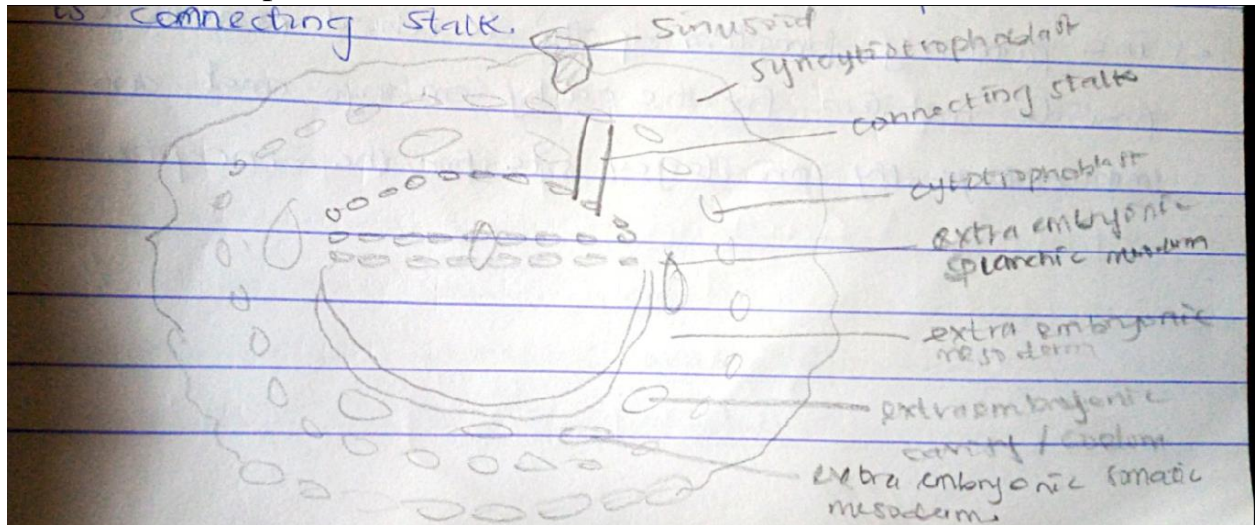 is connecting stalk.
sinusoid
syncytiotrophoblast
connecting stalk
cytotrophoblast
extra embryonic
splanchic
extra embryonic
mesoderm
extraembryonic
cavity /
extra embryonic somatic
mesoderm